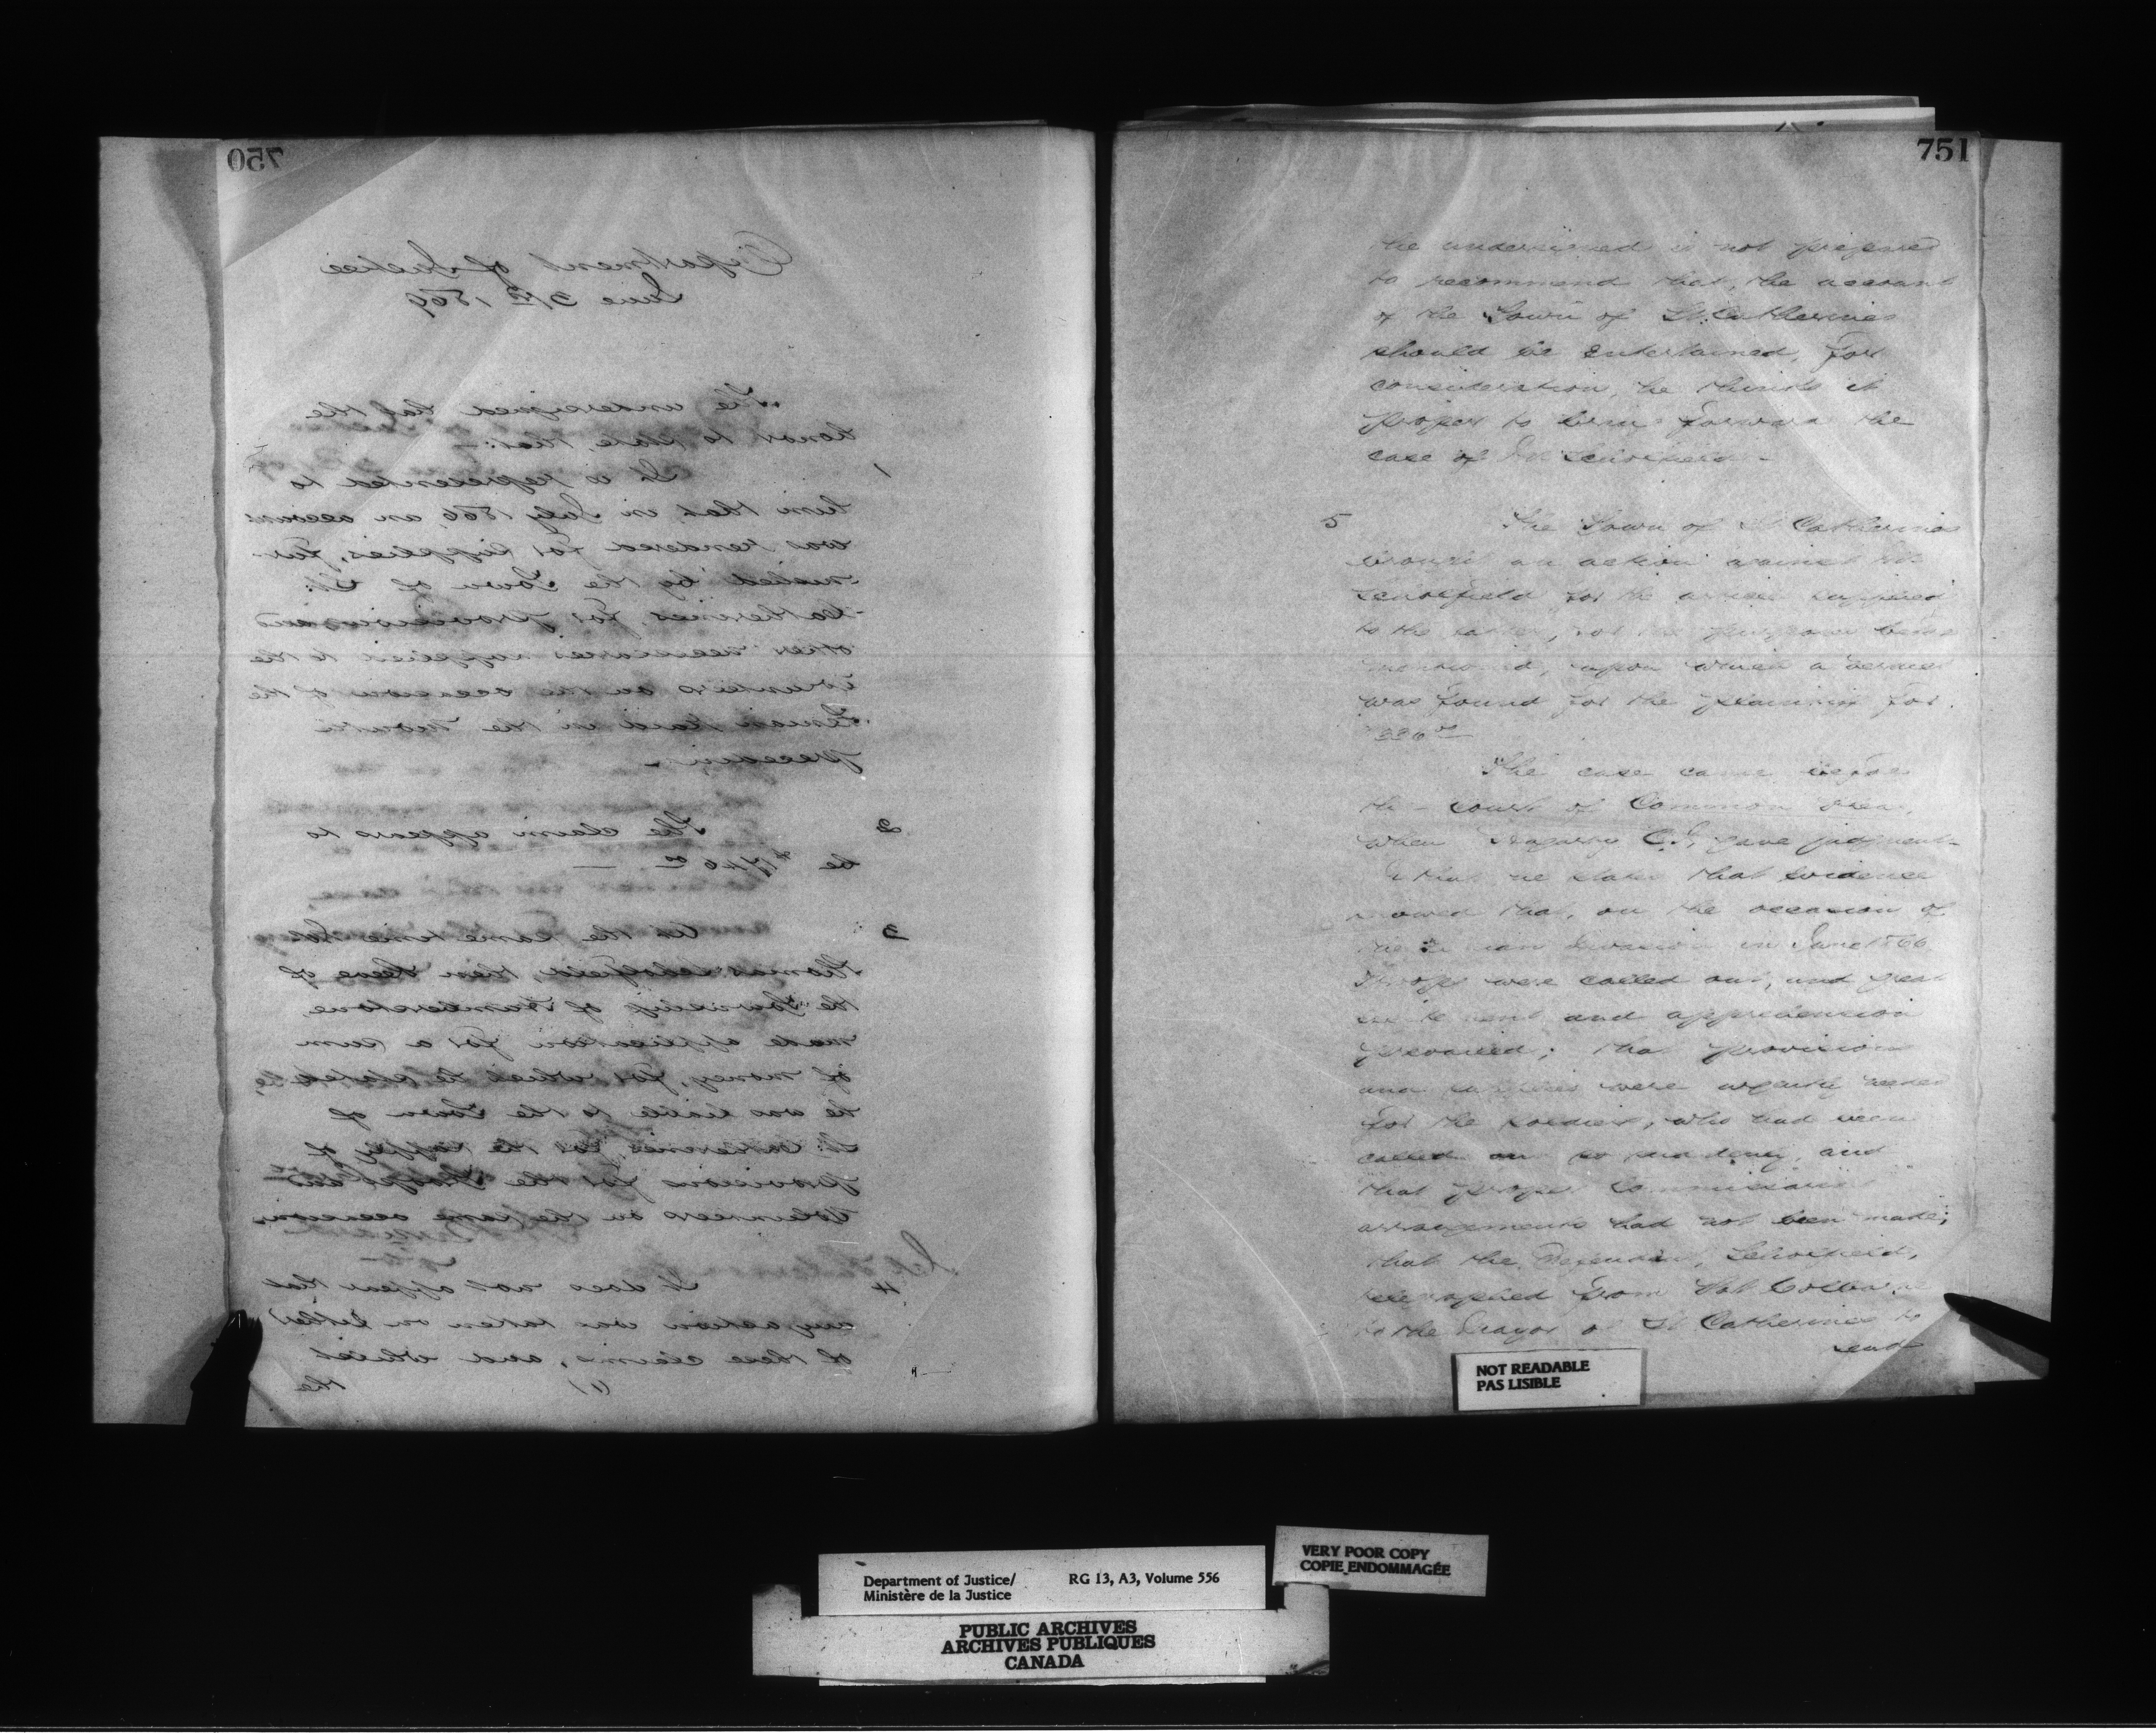 750
Department of Justice
June 3rd 1869
The undersigned has the
honor to state, that:—
1 It is represented to
him that in July 1866 an account
was rendered for supplies, fur-
nished by the Town of St:
Catherines, for provisions and
other necessaries supplied to the
volunteers on the occasion of the
Fenian Raid in the month
preceding.
2 The claim appears to
be
3 At the same time
Thomas Scholfield, then Reeve of
the Township of Humberstone
made application for a sum
of money, for which he stated
he was liable to the Town of
St: Catherines, for the supply of
provisions for the Troops and
Volunteers on the same occasion.
4 It does not appear that
any action was taken on either
of these claims, and whilst
(1) the
751
the undersigned is not prepared
to recommend that, the account
of the Town of St. Catherines
should be entertained, for
consideration, he thinks it
proper to bring forward the
case of Mr Scholfield —
5 The Town of St Catherines
brought an action against Mr
Scholfield for the articles supplied
to the latter, for the purposes
upon which a verdict
was found for the plaintiff for
The case came before
the court of Common Pleas,
when Hagarty C.J, gave judgment
that evidence
showed that, on the occasion of
the Fenian Invasion in June 1866
Troops were called out, and great
excitement and apprehension
prevailed; that provisions
and supplies were urgently needed
for the soldiers, who had been
called out so suddenly, and
that proper Commissariat
arrangements had not been made;
that the Defendant, Scholfield,
telegraphed from Port Colborne
to the Mayor of St Catherines to
send
NOT READABLE
PAS LISIBLE
VERY POOR COPY
COPIE ENDOMMAGÉE
Department of Justice/ RG 13, A3, Volume 556
Ministère de la Justice
PUBLIC ARCHIVES
ARCHIVES PUBLIQUES
CANADA